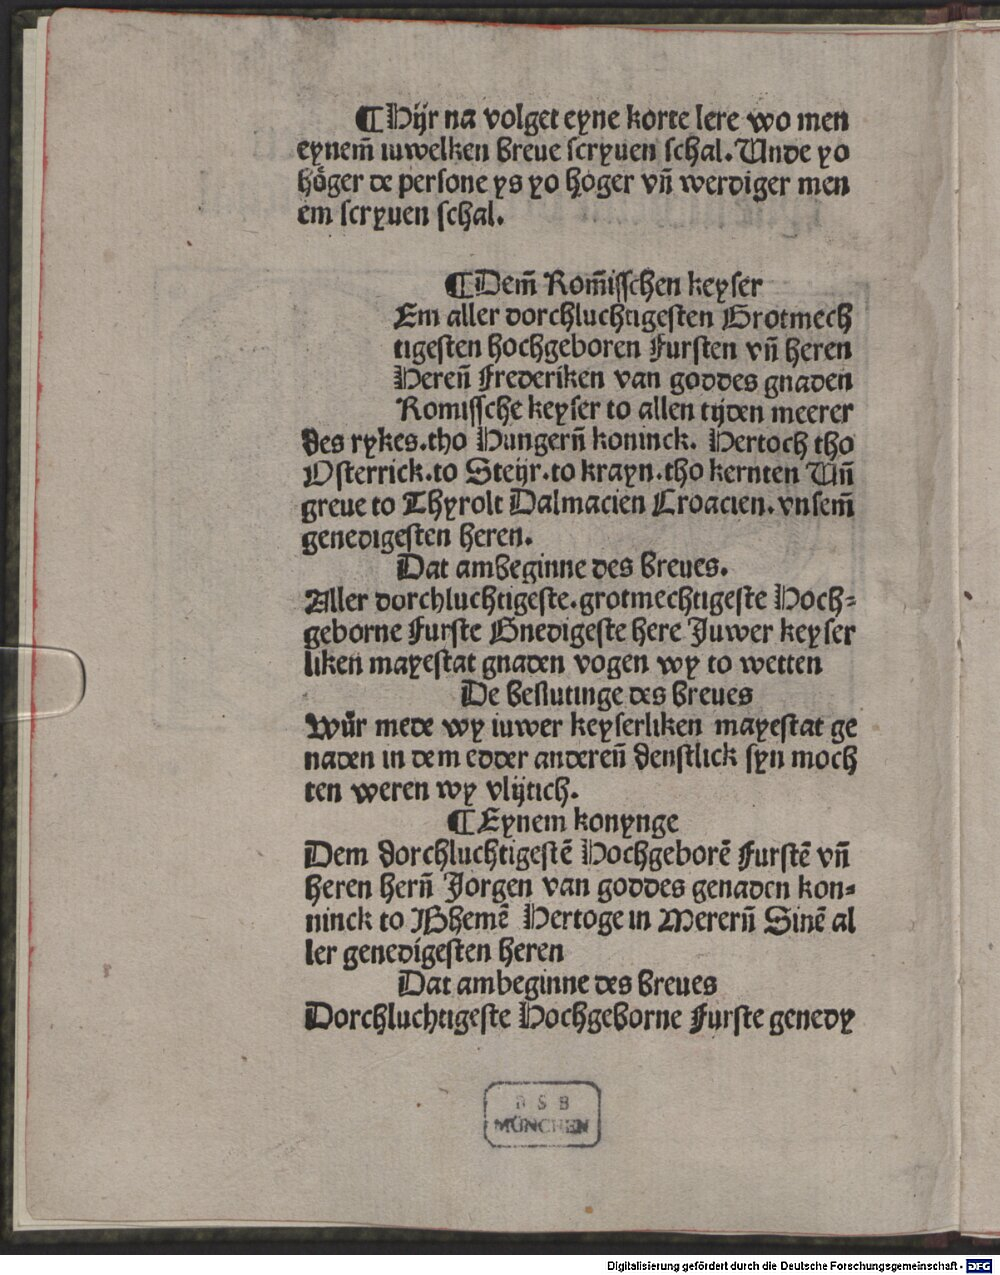 ¶Hijr na volget eyne korte lere wo men
eynem̄ iuwelken breue scryuen schal. Unde yo
hoͤger de persone ys yo hoger vn̄ werdiger men
em scryuen schal.
¶Dem̄ Rom̄isschen keyser
Em aller dorchluchtigesten Grotmech
tigesten hochgeboren Fursten vn̄ heren
Heren̄ Frederiken van goddes gnaden
Romissche keyser to allen tijden meerer
des rykes. tho Hungern̄ koninck. Hertoch tho
Osterrick. to Steijr. to krayn. tho kernten Un̄
greue to Thyrolt Dalmacien Croacien. vnsem̄
genedigesten heren.
Dat ambeginne des breues.
Aller dorchluchtigeste. grotmechtigeste Hoch⸗
geborne Furste Gnedigeste here Juwer keyser
liken mayestat gnaden vogen wy to wetten
De beslutinge des breues
Wuͤr mede wy iuwer keyserliken mayestat ge
naden in dem edder anderen̄ denstlick syn moch
ten weren wy vlijtich.
¶Eynem konynge
Dem dorchluchtigestē Hochgeborē Furstē vn̄
heren hern̄ Jorgen van goddes genaden kon⸗
ninck to Bhemē Hertoge in Merern̄ Sinē al
ler genedigesten heren
Dat ambeginne des breues
Dorchluchtigeste Hochgeborne Furste genedy
B S B
MÜNCHEN
Digitalisierung gefördert durch die Deutsche Forschungsgemeinschaft - DFG